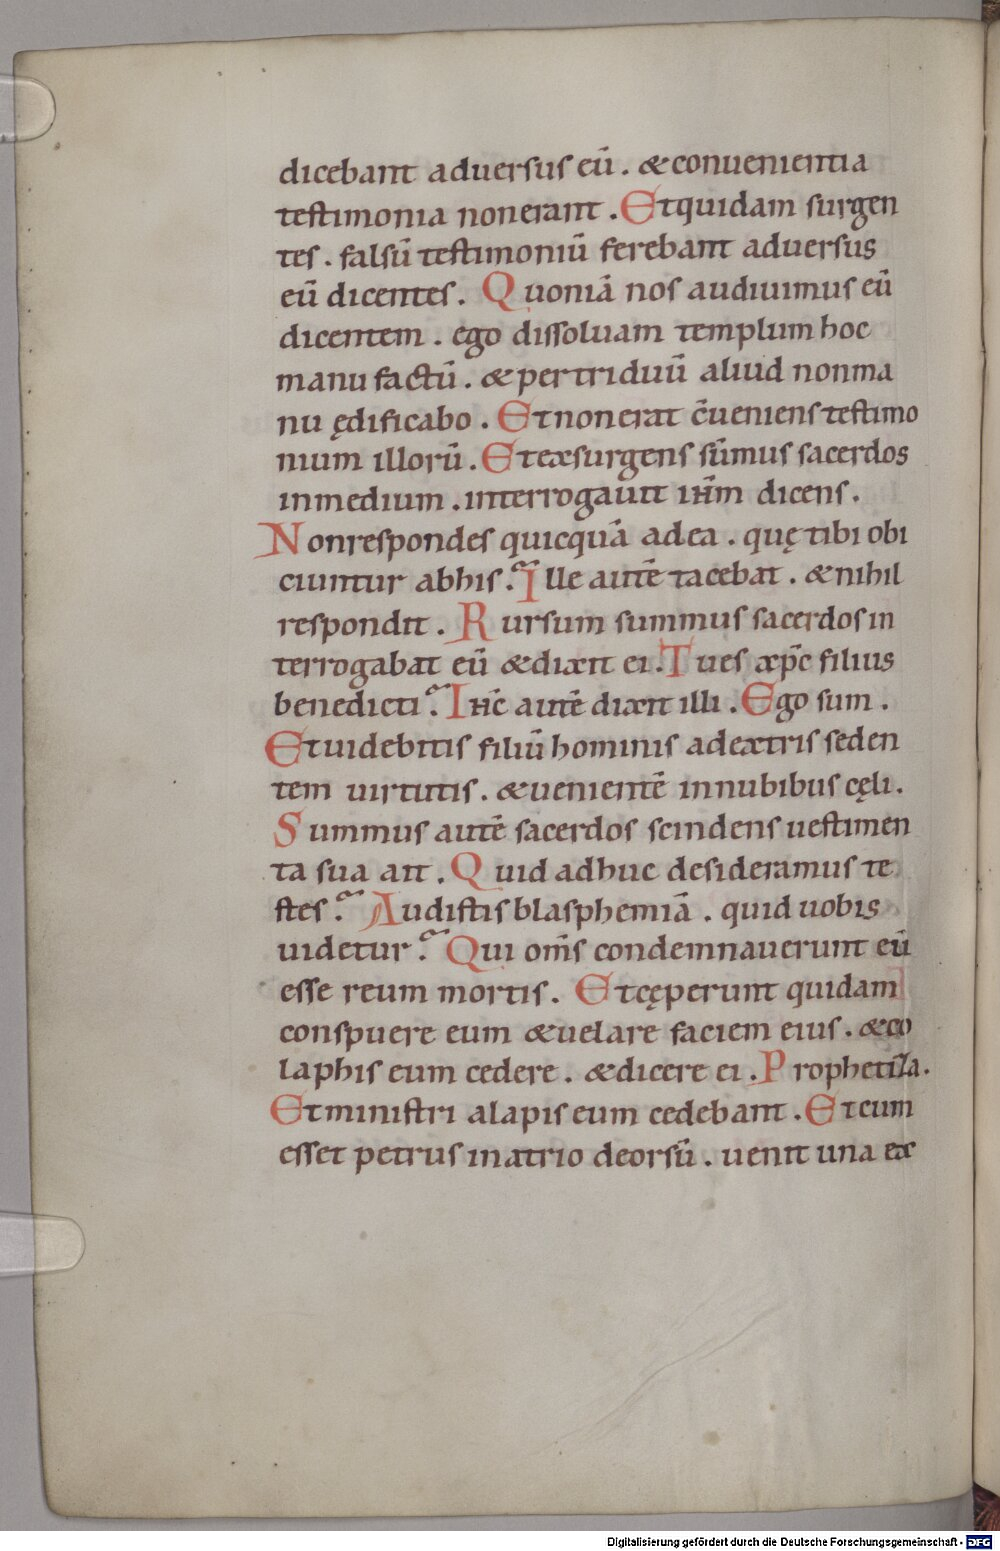 dicebant aduersus eū . & conuenientia
testimonia non erant . Et quidam surgen
tes . falsū testimoniū ferebant aduersus
eū dicentes . Quoniā nos audiuimus eū
dicentem . ego dissoluam templum hoc
manu factū . & per triduū aliud non ma
nu ędificabo . Et non erat c̄ueniens testimo
nium illorū . Et exsurgens sūmus sacerdos
in medium . interrogauit ih̄m dicens .
Non respondes quicquā ad ea . quę tibi obi
ciuntur ab his ? Ille autē tacebat . & nihil
respondit . Rursum summus sacerdos in
terrogabat eū & dixit ei . Tu es xp̄c filius
benedicti ? Ih̄c autē dixit illi . Ego sum .
Et uidebitis filiū hominis a dextris seden
tem uirtutis . & uenientē in nubibus cęli .
Summus autē sacerdos scindens uestimen
ta sua ait . Quid adhuc desideramus te
stes ? Audistis blasphemiā . quid uobis
uidetur ? Qui om̄s condemnauerunt eū
esse reum mortis . Et cęperunt quidam
conspuere eum & uelare faciem eius . & co
laphis eum cedere . & dicere ei . Prophetiza .
Et ministri alapis eum cedebant . Et cum
esset petrus in atrio deorsū . uenit una ex
Digitalisierung gefördert durch die Deutsche Forschungsgemeinschaft - DFG